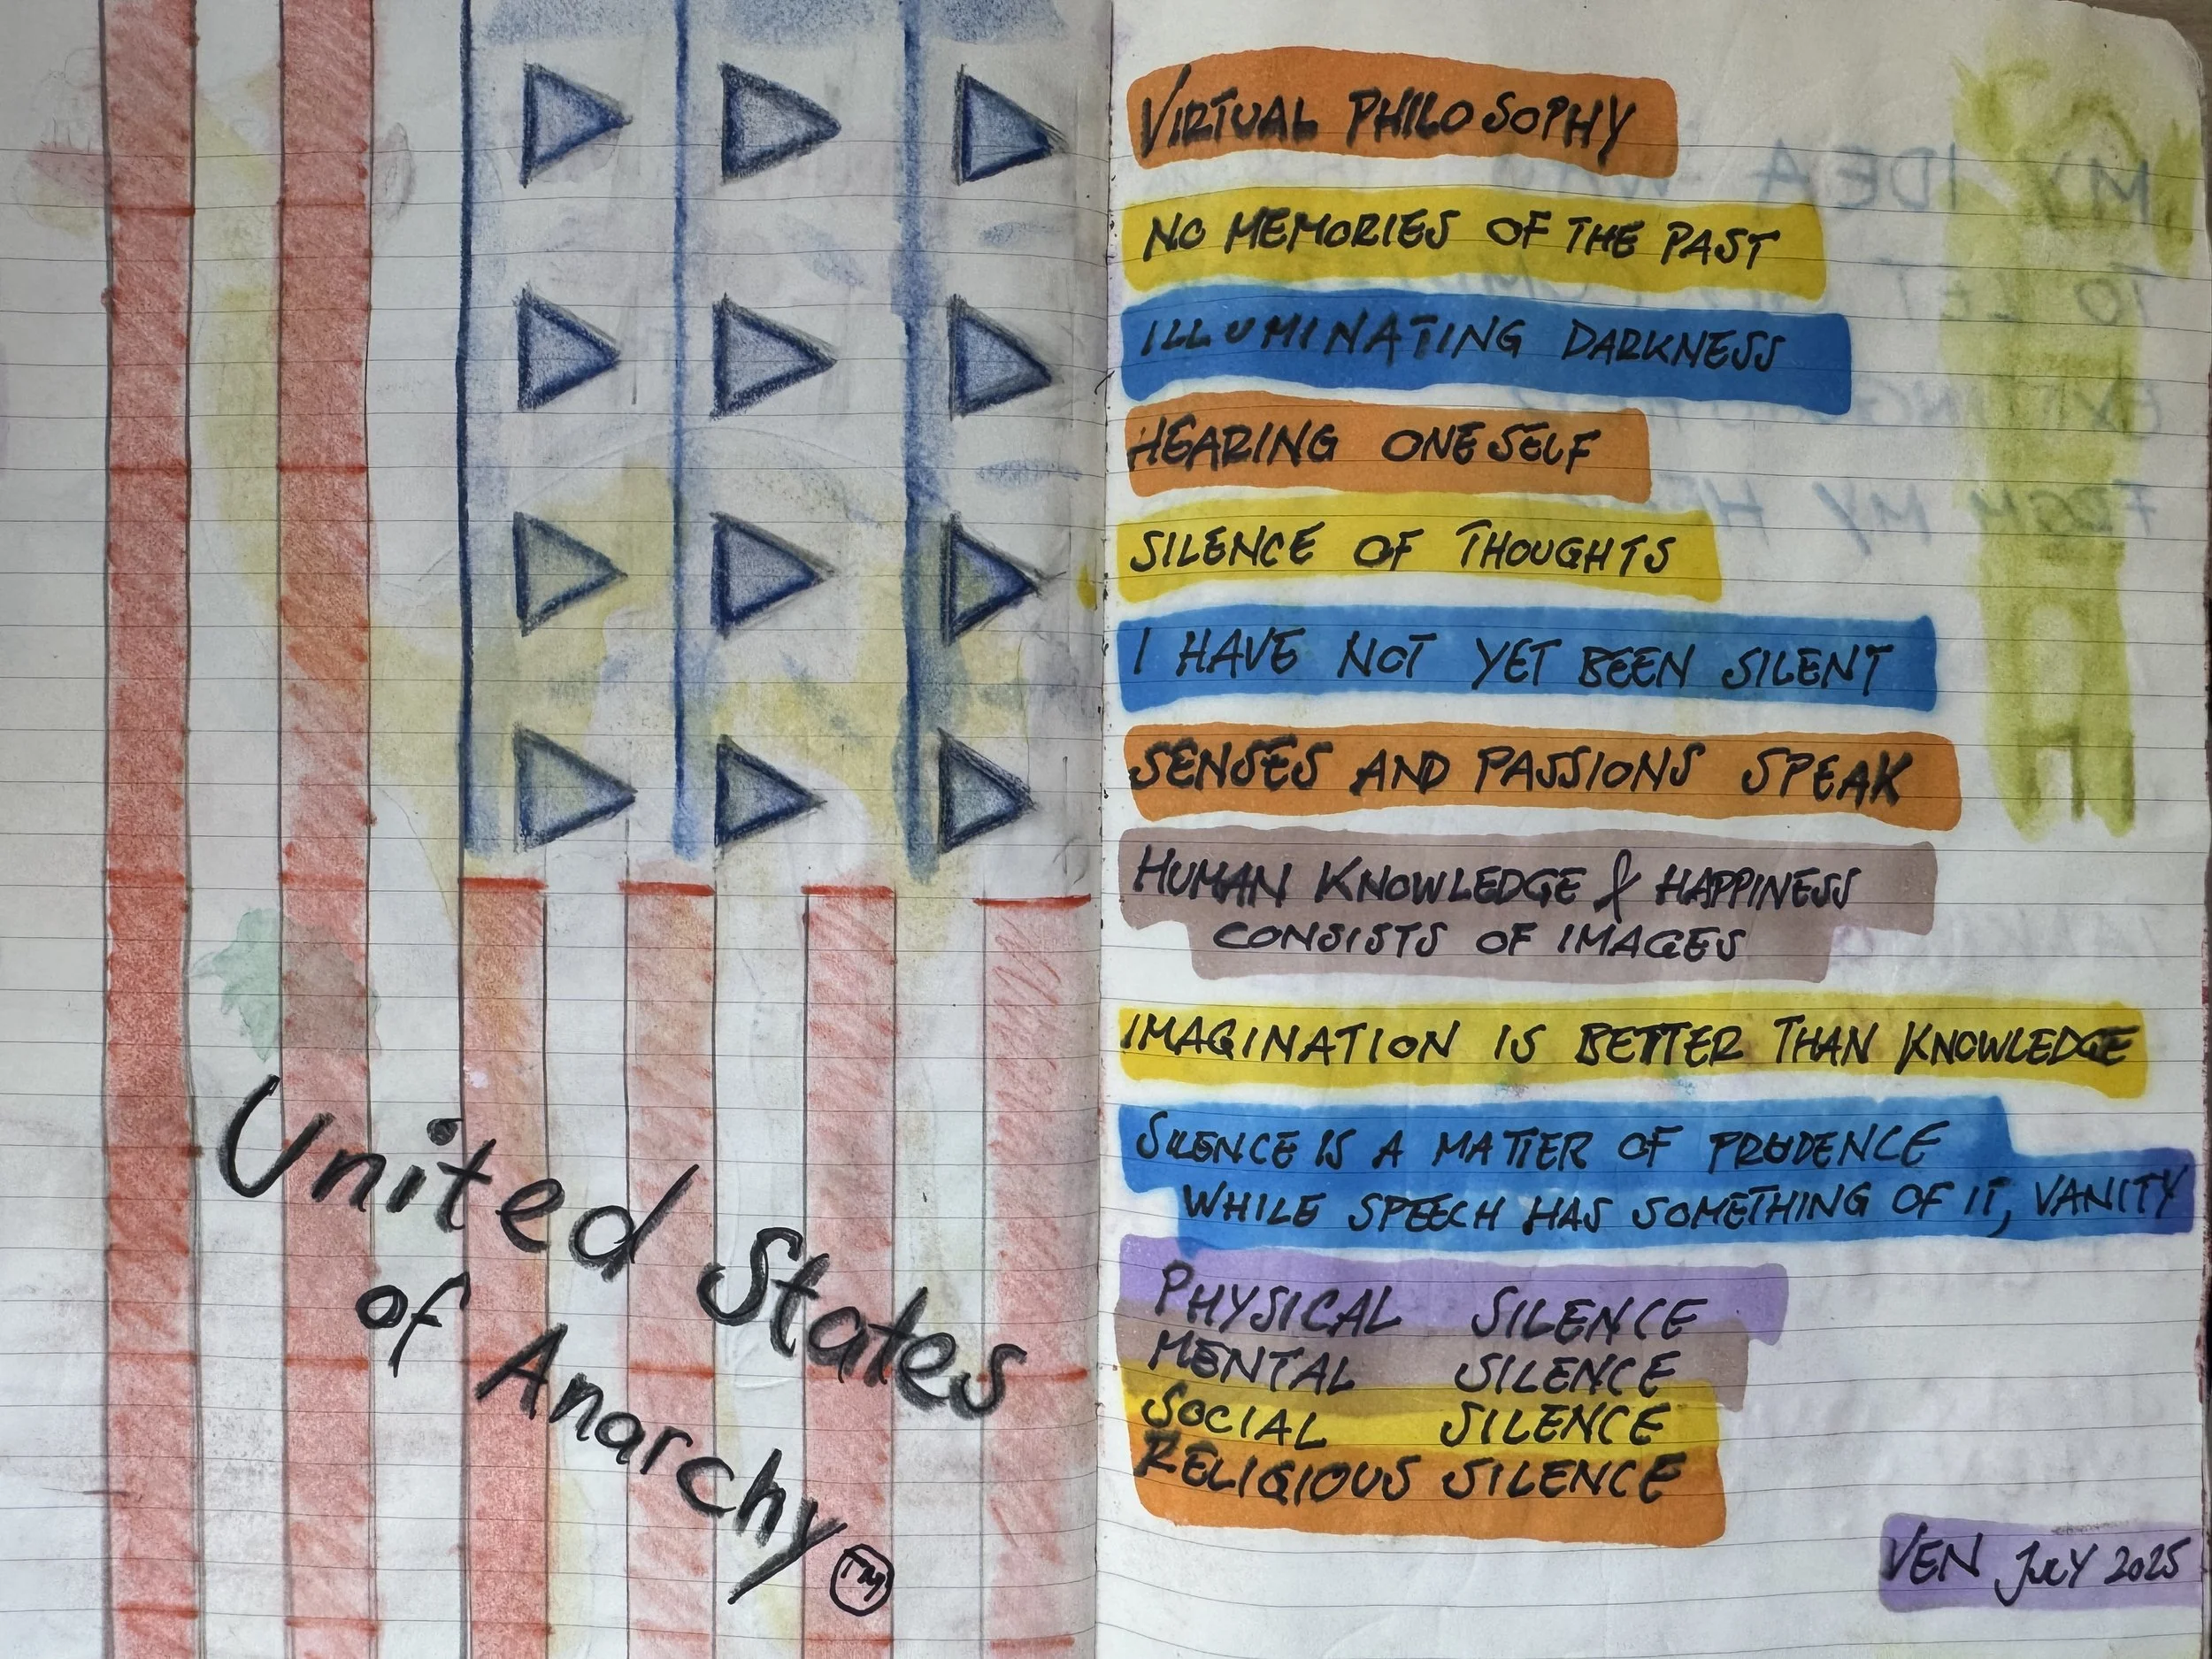 United States
of Anarchy
TM
VIRTUAL PHILOSOPHY
NO MEMORIES OF THE PAST
ILLUMINATING DARKNESS
HEARING ONESELF
SILENCE OF THOUGHTS
I HAVE NOT YET BEEN SILENT
SENSES AND PASSIONS SPEAK
HUMAN KNOWLEDGE & HAPPINESS
CONSISTS OF IMAGES
IMAGINATION IS BETTER THAN KNOWLEDGE
SILENCE IS A MATTER OF PRUDENCE
WHILE SPEECH HAS SOMETHING OF IT, VANITY
PHYSICAL SILENCE
MENTAL SILENCE
SOCIAL SILENCE
RELIGIOUS SILENCE
VEN JULY 2025
MY IDEA WAS
TO LET
FROM MY